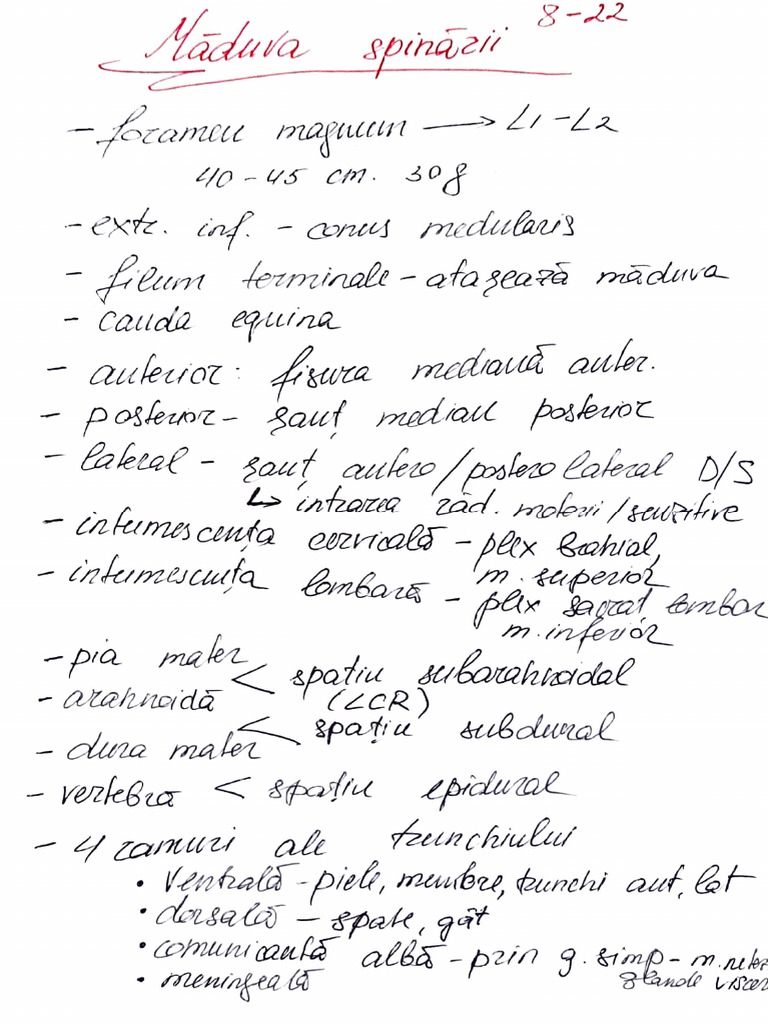 8-22
Măduva spinării
- foramen magnum → L1-L2
40-45 cm. 30g
- extr. inf. - conus medularis
- filum terminale - atașează măduva
- cauda equina
- anterior: fisura mediană anter.
- posterior - șanț median posterior
- lateral - șanț antero/postero lateral D/S
↳ intrarea răd. motorii/senzitive
- intumescența cervicală - plex brahial,
m. superior
- intumescența lombară - plex sacrat, lombar
m. inferior
- pia mater
< spațiu subarahnoidal
- arahnoidă (LCR)
< spațiu subdural
- dura mater
- vertebră < spațiu epidural
- 4 ramuri ale trunchiului
• ventrală - piele, membre, trunchi ant, lat
• dorsală - spate, gât
• comunicantă albă - prin g. simp - m. neted
glande viscer
• meningeală